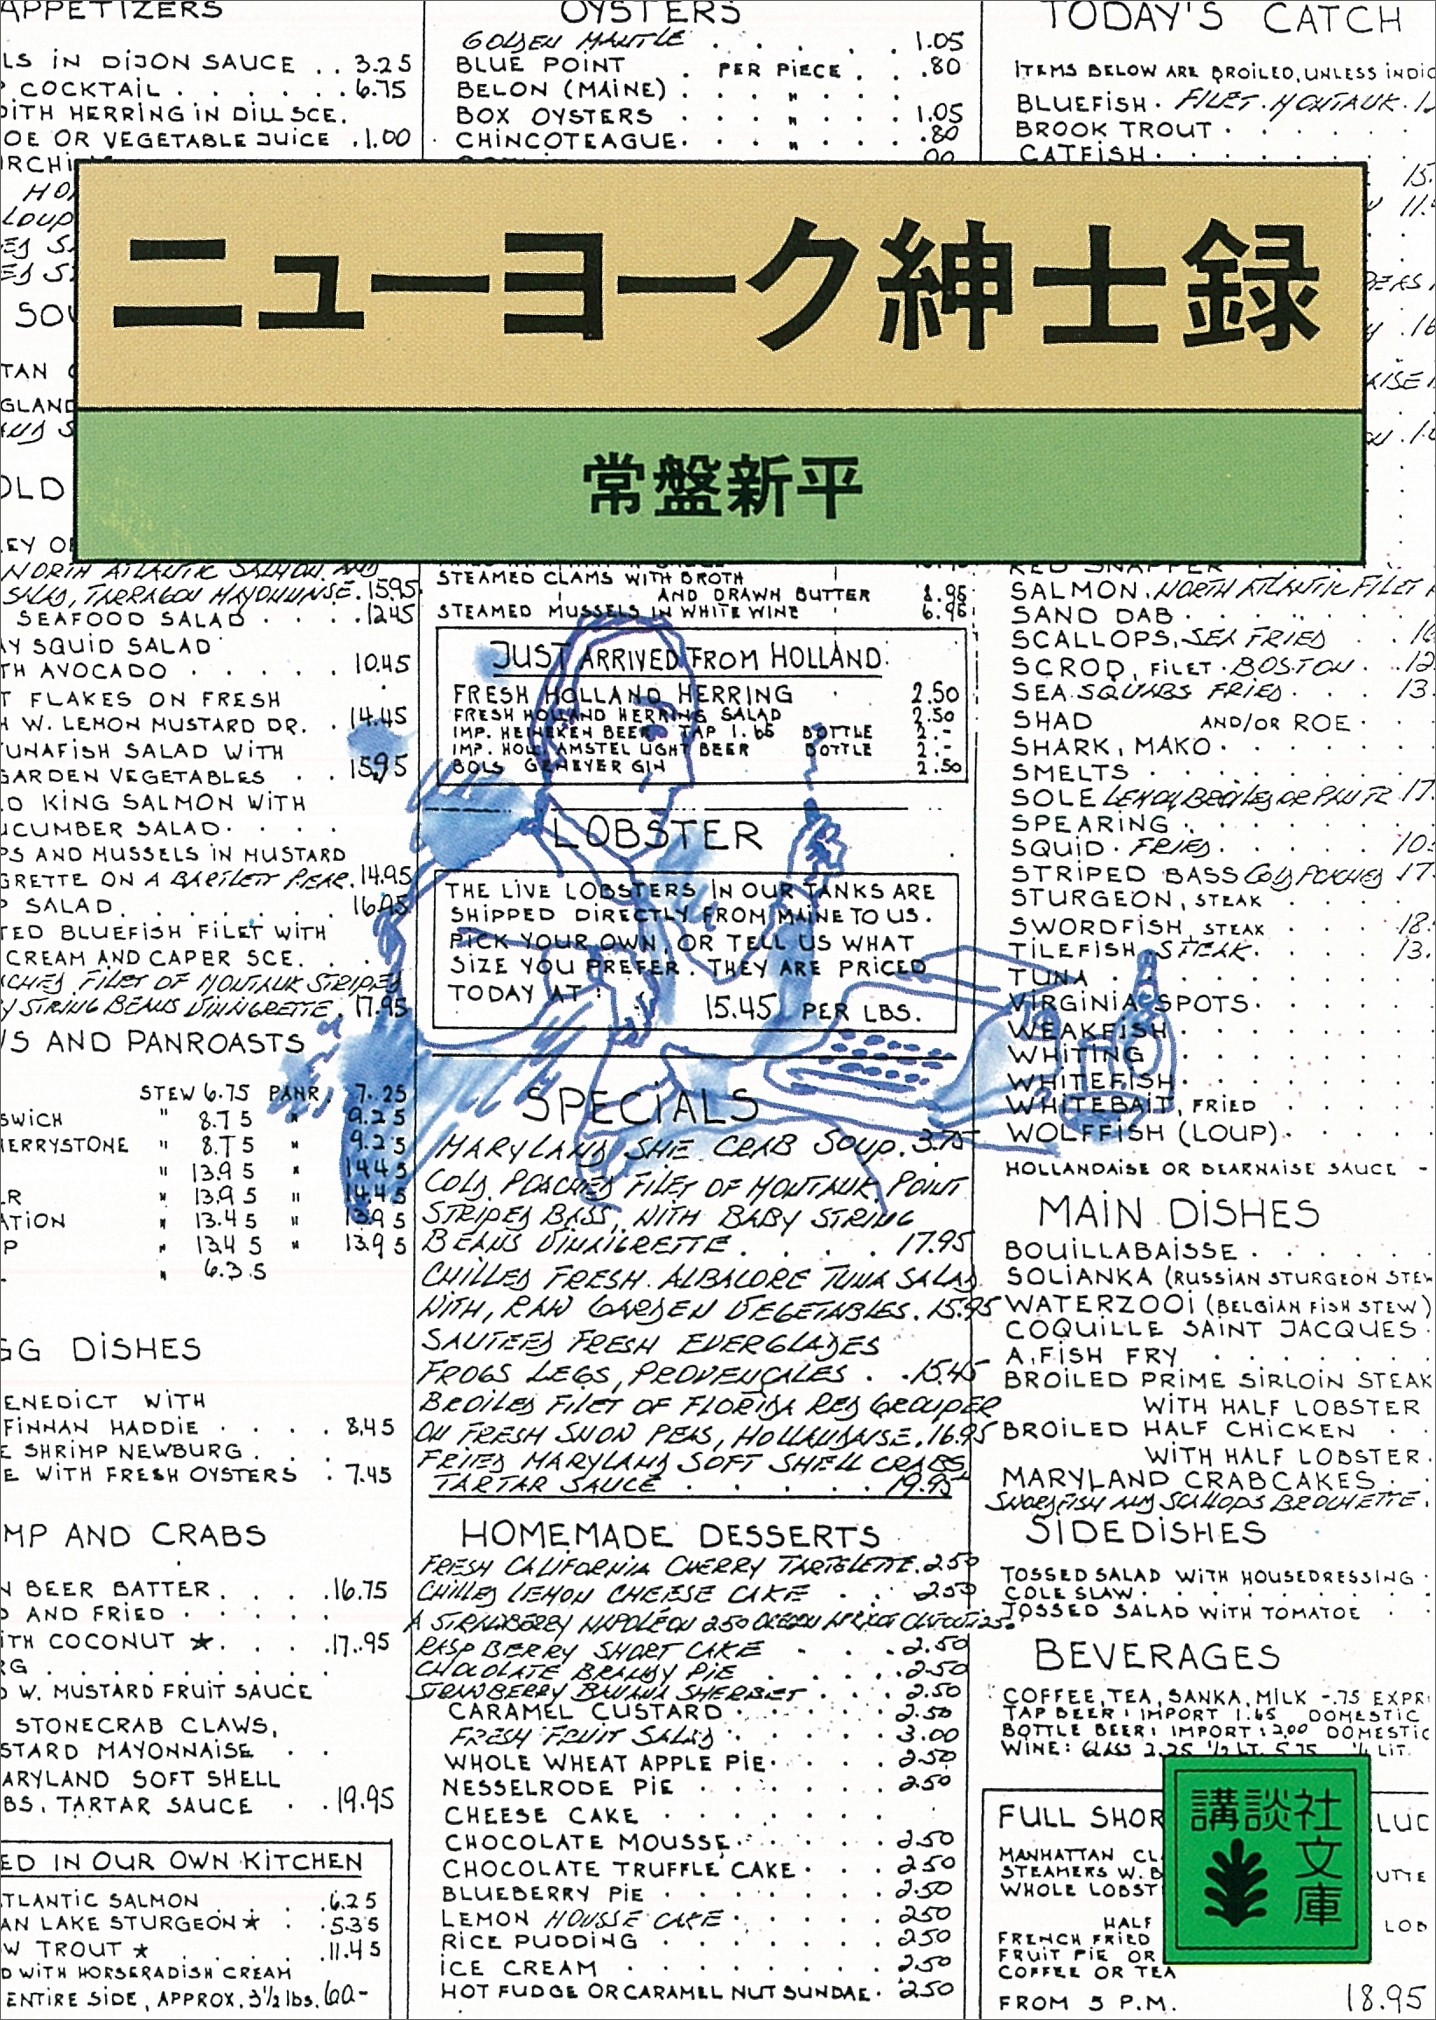 APPETIZERS
LS IN DIJON SAUCE . . 3.25
COCKTAIL . . . . . . 6.75
DITH HERRING IN DILL SCE.
OE OR VEGETABLE JUICE . 1.00
OYSTERS
GOLDEN MANTLE . . . . . 1.05
BLUE POINT . PER PIECE . . .80
BELON (MAINE) . . " . .
BOX OYSTERS . . " . . 1.05
CHINCOTEAGUE . . " . . .80
TODAY'S CATCH
ITEMS BELOW ARE BROILED, UNLESS INDIC
BLUEFISH . FILET . MONTAUK . 1
BROOK TROUT .
CATFISH .
ニューヨーク紳士録
常盤新平
NORTH ATLANTIC SALMON AND
SALAD, TARRAGON MAYONNAISE . 15.95
SEAFOOD SALAD . . . . 12.45
AY SQUID SALAD
TH AVOCADO . . . . . 10.45
T FLAKES ON FRESH
H W. LEMON MUSTARD DR. . 14.45
TUNAFISH SALAD WITH
GARDEN VEGETABLES . . 15.95
LD KING SALMON WITH
UCUMBER SALAD . . . .
PS AND MUSSELS IN MUSTARD
GRETTE ON A BARTLETT PEAR . 14.95
P SALAD . . . . . . 16.95
TED BLUEFISH FILET WITH
CREAM AND CAPER SCE. . . .
CHED FILET OF MONTAUK STRIPED
Y STRING BEANS VINAIGRETTE . 17.95
S AND PANROASTS
STEW 6.75 PANR. 7.25
SWICH " 8.75 " 9.25
HERRYSTONE " 8.75 " 9.25
" 13.95 " 14.45
R " 13.95 " 14.45
ATION " 13.45 " 13.95
P " 13.45 " 13.95
" 6.35
GG DISHES
ENEDICT WITH
FINNAN HADDIE . . . . 8.45
E SHRIMP NEWBURG . .
E WITH FRESH OYSTERS . 7.45
MP AND CRABS
N BEER BATTER . . . . 16.75
D AND FRIED . . . . .
ITH COCONUT ★ . . . . 17.95
RG . . . . . . . .
D W. MUSTARD FRUIT SAUCE
STONECRAB CLAWS,
STARD MAYONNAISE . .
ARYLAND SOFT SHELL
BS, TARTAR SAUCE . . 19.95
ED IN OUR OWN KITCHEN
TLANTIC SALMON . . . 6.25
AN LAKE STURGEON ★ . . 5.35
W TROUT ★ . . . . 11.45
D WITH HORSERADISH CREAM
ENTIRE SIDE, APPROX. 3½ lbs. 60-
STEAMED CLAMS WITH BROTH
AND DRAWN BUTTER 8.95
STEAMED MUSSELS IN WHITE WINE 6.95
JUST ARRIVED FROM HOLLAND.
FRESH HOLLAND HERRING . 2.50
FRESH HOLLAND HERRING SALAD 2.50
IMP. HEINEKEN BEER TAP 1.65 BOTTLE 2.-
IMP. HOLL. AMSTEL LIGHT BEER BOTTLE 2.-
BOLS GENEVER GIN 2.50
LOBSTER
THE LIVE LOBSTERS IN OUR TANKS ARE
SHIPPED DIRECTLY FROM MAINE TO US.
PICK YOUR OWN, OR TELL US WHAT
SIZE YOU PREFER. THEY ARE PRICED
TODAY AT: 15.45 PER LBS.
SPECIALS
MARYLAND SHE CRAB SOUP . 3.75
COLD POACHED FILET OF MONTAUK POINT
STRIPED BASS, WITH BABY STRING
BEANS VINAIGRETTE . . . . 17.95
CHILLED FRESH ALBACORE TUNA SALAD
WITH, RAW GARDEN VEGETABLES . 15.95
SAUTEED FRESH EVERGLADES
FROGS LEGS, PROVENÇALES . . 15.45
BROILED FILET OF FLORIDA RED GROUPER
ON FRESH SNOW PEAS, HOLLANDAISE . 16.95
FRIED MARYLAND SOFT SHELL CRABS,
TARTAR SAUCE . . . . 19.95
HOMEMADE DESSERTS
FRESH CALIFORNIA CHERRY TARTELETTE . 2.50
CHILLED LEMON CHEESE CAKE . . 2.50
A STRAWBERRY NAPOLEON 2.50
RASPBERRY SHORT CAKE . . . 2.50
CHOCOLATE BRANDY PIE . . . 2.50
STRAWBERRY BANANA SHERBET . . . 2.50
CARAMEL CUSTARD . . . . 2.50
FRESH FRUIT SALAD . . . 3.00
WHOLE WHEAT APPLE PIE . . . 2.50
NESSELRODE PIE . . . . 2.50
CHEESE CAKE . . . . .
CHOCOLATE MOUSSE . . . . 2.50
CHOCOLATE TRUFFLE CAKE . . . 2.50
BLUEBERRY PIE . . . . 2.50
LEMON MOUSSE CAKE . . . . 2.50
RICE PUDDING . . . . . 2.50
ICE CREAM . . . . . 2.50
HOT FUDGE OR CARAMEL NUT SUNDAE . 2.50
RED SNAPPER
SALMON, NORTH ATLANTIC FILET
SAND DAB . . . .
SCALLOPS, SEA FRIED . . 16
SCROD, FILET . BOSTON . . 12
SEA SQUABS FRIED . . . 13
SHAD AND/OR ROE .
SHARK, MAKO . . . .
SMELTS . . . . .
SOLE LEMON BROILED OR PAN FR 17
SPEARING . . . .
SQUID . FRIED . . . 10
STRIPED BASS COLD POACHED 17
STURGEON, STEAK . . .
SWORDFISH, STEAK . . . 18
TILEFISH STEAK . . . 13
TUNA . . . .
VIRGINIA SPOTS . . . .
WEAKFISH . . . .
WHITING . . . .
WHITEFISH . . . .
WHITEBAIT, FRIED . . .
WOLFFISH (LOUP) . . . .
HOLLANDAISE OR BEARNAISE SAUCE -
MAIN DISHES
BOUILLABAISSE . . . .
SOLIANKA (RUSSIAN STURGEON STEW
WATERZOOI (BELGIAN FISH STEW)
COQUILLE SAINT JACQUES .
A. FISH FRY . . . .
BROILED PRIME SIRLOIN STEAK
WITH HALF LOBSTER
BROILED HALF CHICKEN . .
WITH HALF LOBSTER .
MARYLAND CRABCAKES . .
SWORDFISH AND SCALLOPS BROCHETTE .
SIDEDISHES
TOSSED SALAD WITH HOUSEDRESSING .
COLE SLAW . . . .
TOSSED SALAD WITH TOMATOE . .
BEVERAGES
COFFEE, TEA, SANKA, MILK -.75 EXPR
TAP BEER: IMPORT 1.65 DOMESTIC
BOTTLE BEER: IMPORT: 2.00 DOMESTIC
WINE: GLASS 2.25 ½ LT. 5.75 ¼ LIT.
FULL SHOR
LUC
MANHATTAN CL
STEAMERS W. B
UTTE
WHOLE LOBST
HALF
LOB
FRENCH FRIED
FRUIT PIE OR
COFFEE OR TEA
FROM 5 P.M. 18.95
講談社
文庫